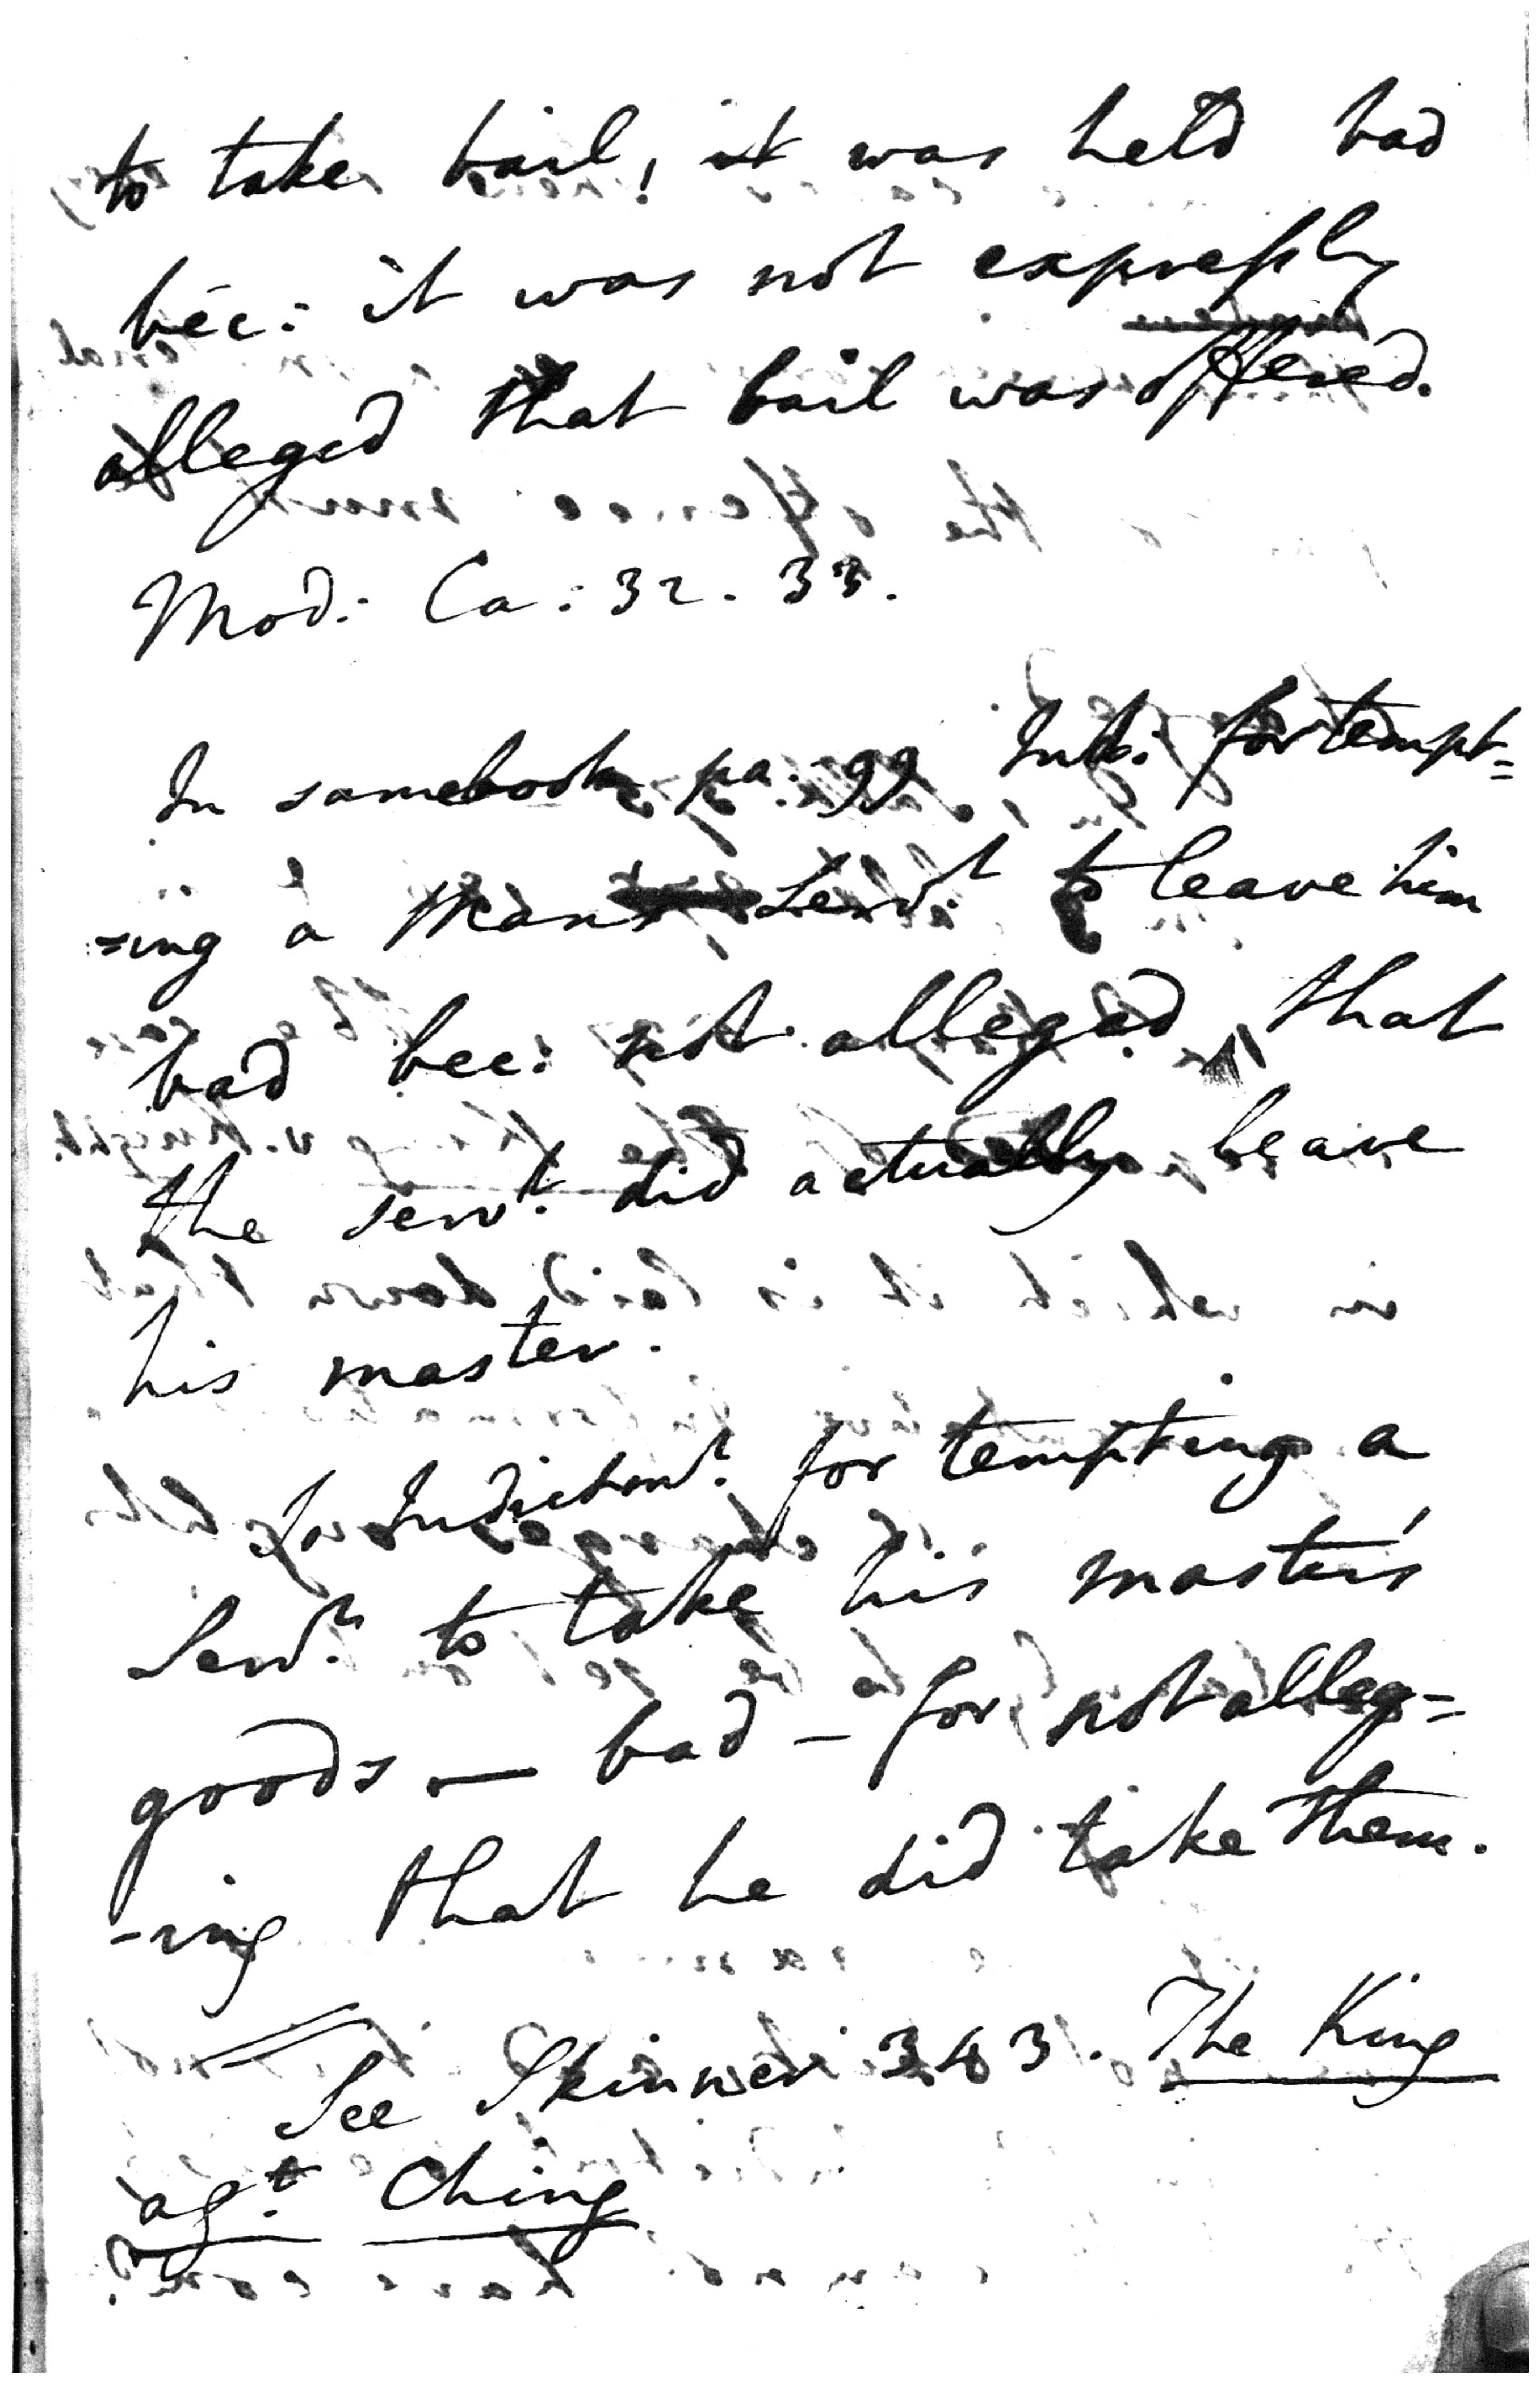 to take bail, it was held bad
bec: it was not expressly
alleged that bail was offered.
Mod: Ca: 32. 33.
In same book pa. 99 Indt. for tempt=
=ing a Mans Servt. to leave him
bad bec: not alleged that
the servt. did actually leave
his master.
So Indictmt. for tempting a
Servt. to take his master's
goods — bad — for not alleg=
-ing that he did take them.
See Skinner 343. The King
agt. Ching